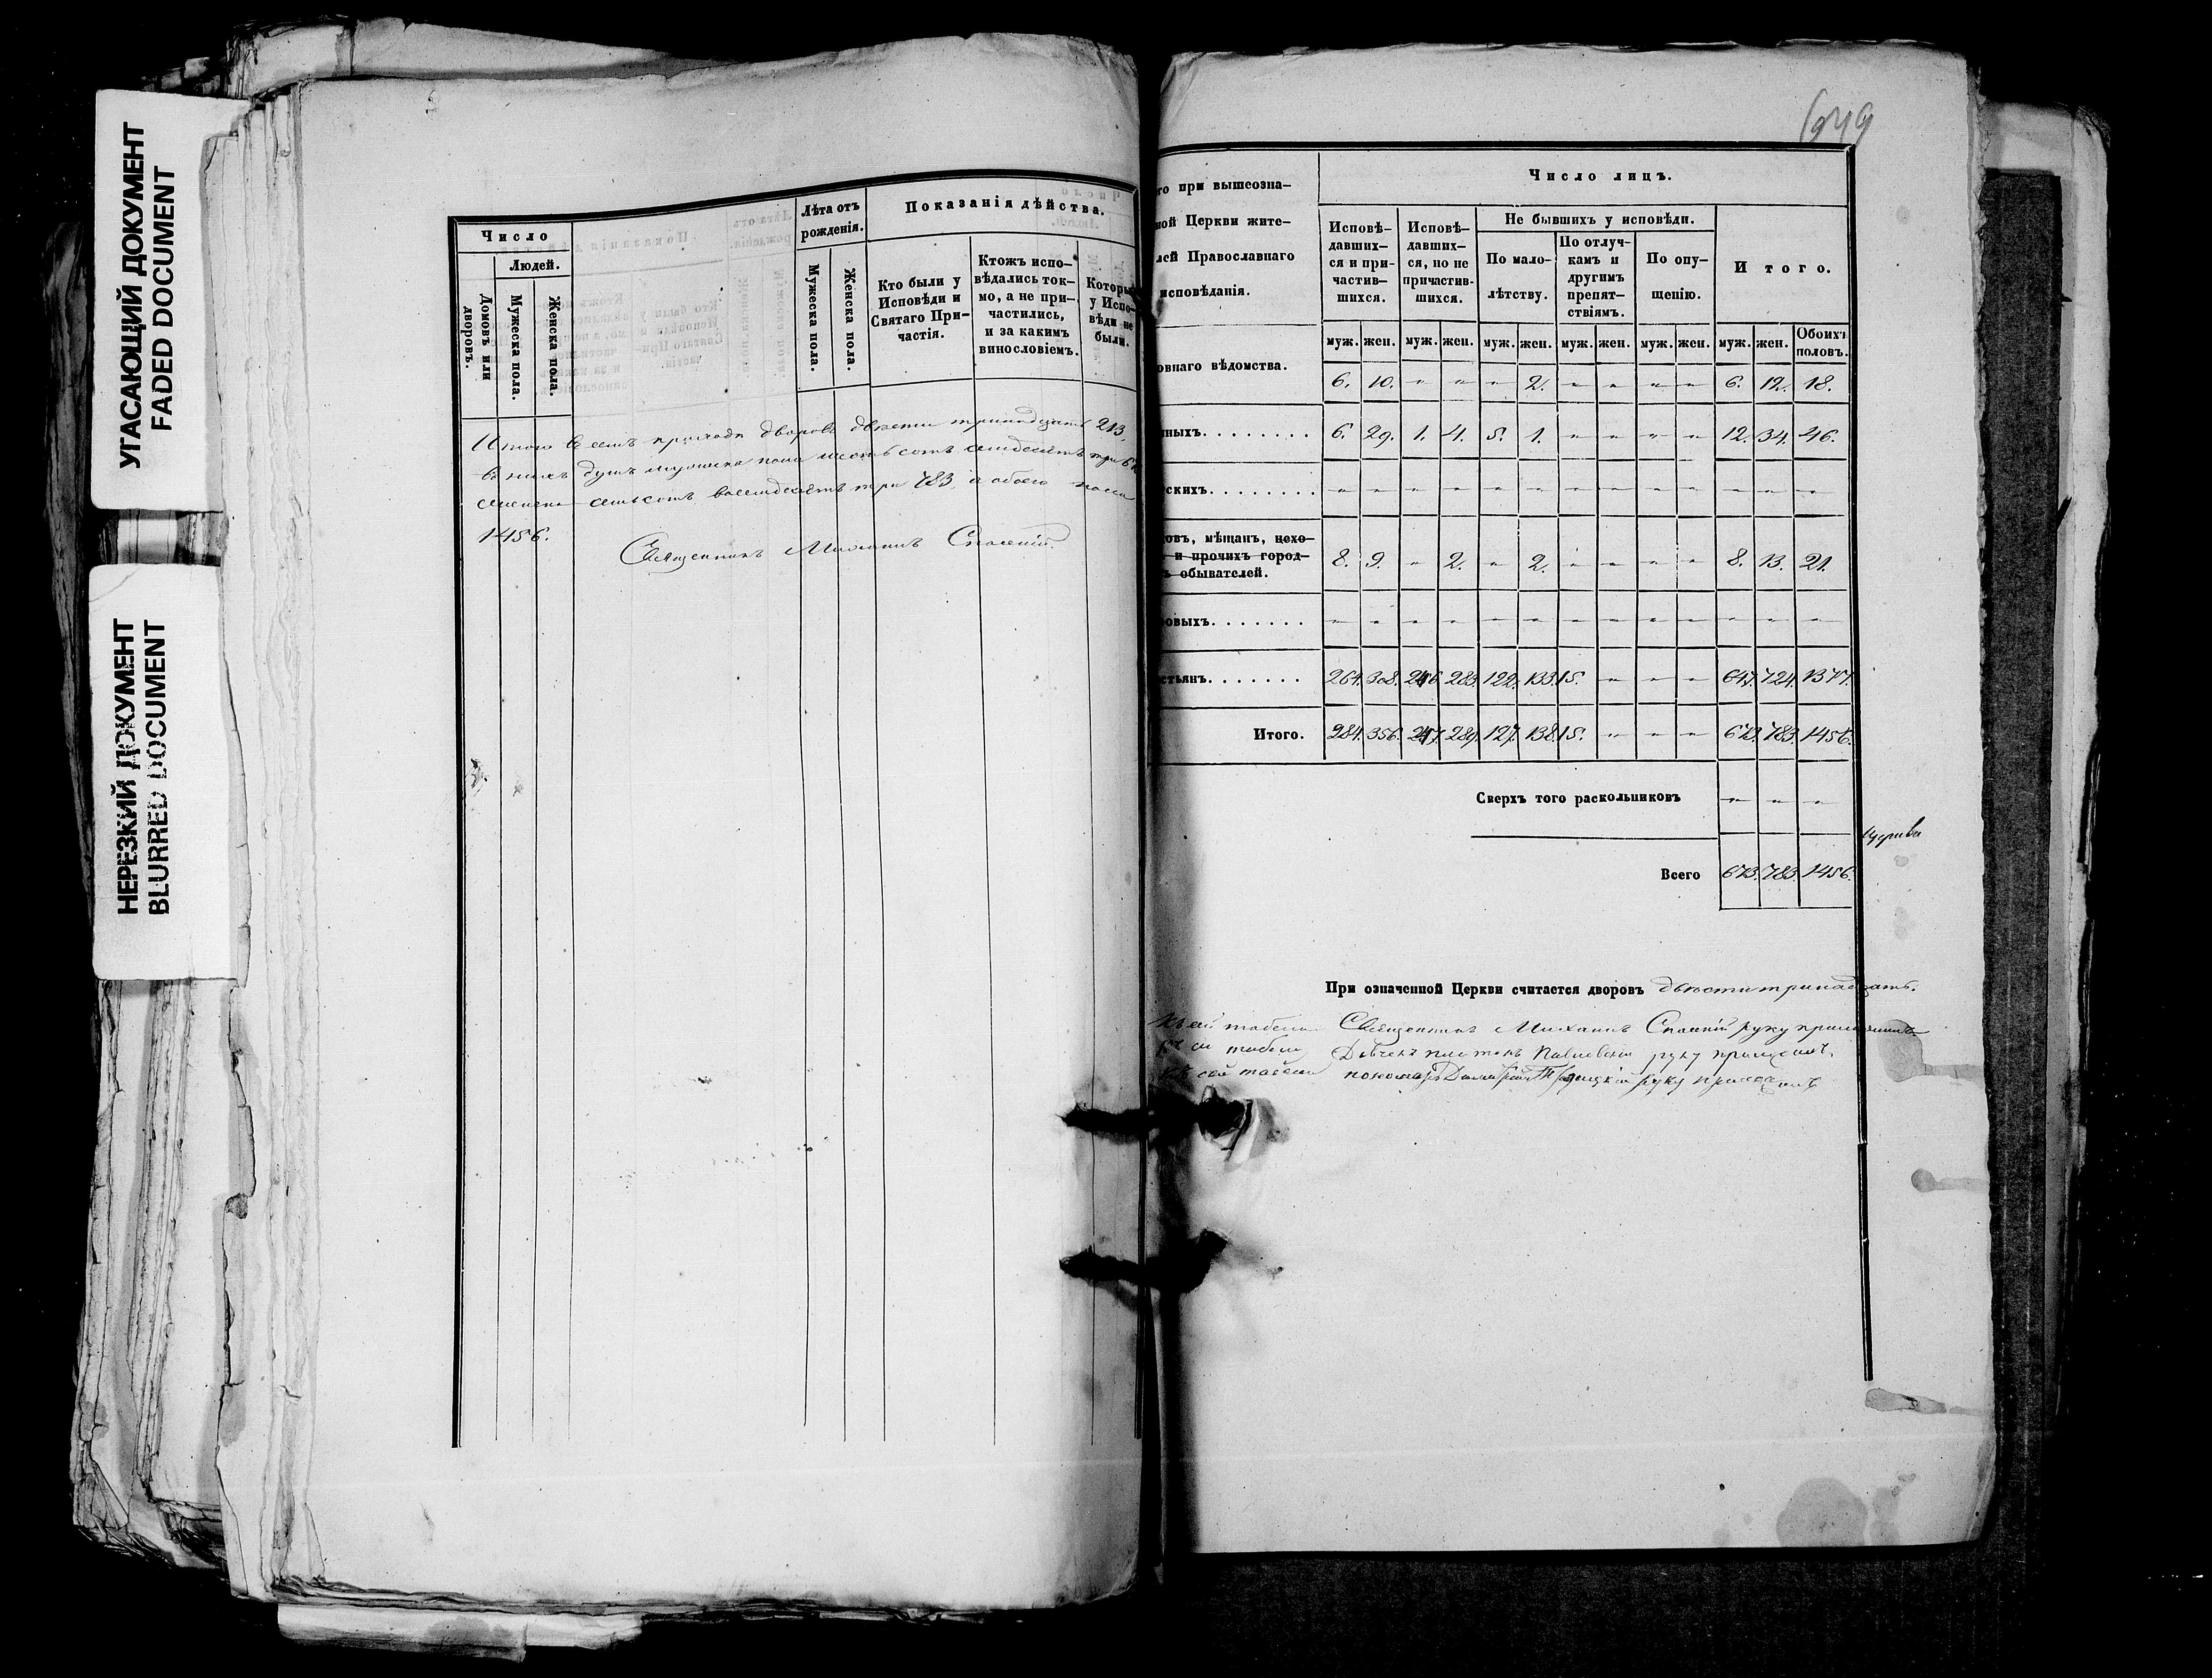 УГАСАЮЩИЙ ДОКУМЕНТ
FADED DOCUMENT
НЕРЕЗКИЙ ДОКУМЕНТ
BLURRED DOCUMENT
Число
Людей.
Домовъ или дворовъ.
Мужеска пола.
Женска пола.
Лѣта отъ рожденія.
Мужеска пола.
Женска пола.
Показанія дѣйства.
Кто были у
Исповѣди и
Святаго При-
частія.
Ктожъ испо-
вѣдались ток-
мо, а не при-
частились,
и за какимъ
винословіемъ.
Которы
у Испо-
вѣди не
были.
Итого всемъ приходѣ дворовъ двѣсти тринадцать 213,
въ нихъ душъ мужеска пола шестьсотъ семьдесятъ три
семьсотъ восемдесятъ три 783, а обоего пола
1456.
Священникъ Михаилъ Спасскій
649
го при вышеозна-
ной Церкви жите-
лей Православнаго
исповѣданія.
Число лицъ.
Исповѣ-
давших-
ся и при-
частив-
шихся.
Исповѣ-
давших-
ся, но не
причастив-
шихся.
Не бывшихъ у исповѣди.
По мало-
лѣтству.
По отлуч-
камъ и
другимъ
препят-
ствіямъ.
По опу-
щенію.
Итого.
муж. жен. муж. жен. муж. жен. муж. жен. муж. жен. муж. жен. Обоихъ половъ.
овнаго вѣдомства. 6. 10. - - - 2. - - - - 6. 12. 18.
нныхъ. . . . . . . . 6. 29. 1. 4. 5. 1. - - - - 12. 34. 46.
скихъ. . . . . . . . - - - - - - - - - - - - -
овъ, мѣщан, цехо-
и прочихъ город-
ъ обывателей. 8. 9. - 2. - 2. - - - - 8. 13. 21.
овыхъ. . . . . . . - - - - - - - - - - - - -
стьянъ. . . . . . . 264. 308. 246. 283. 122. 133. 15. - - - 647. 724. 1371.
Итого. 284. 356. 247. 289. 127. 138. 15. - - - 673. 783. 1456.
Сверхъ того раскольниковъ - - -
Всего 673. 783. 1456.
При означенной Церкви считается дворовъ двѣсти тринадцать.
Къ сей табели Священникъ Михаилъ Спасскій руку приложилъ
Къ сей табели Павловскій руку приложилъ.
Къ сей табели пономарь Димитрій Троицкій руку приложилъ